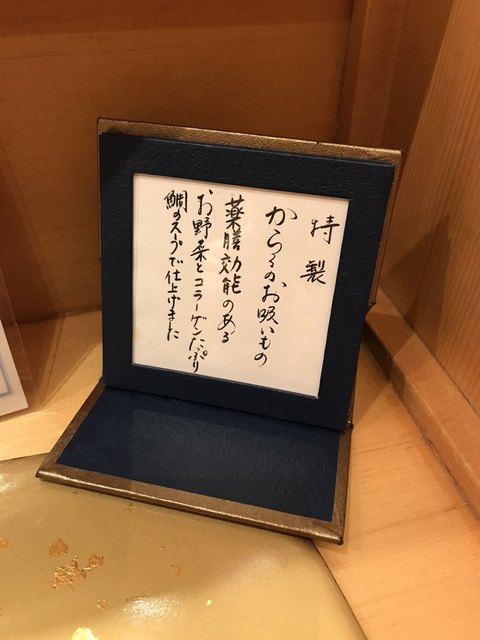 特製
からくのお吸いもの
薬膳効能のある
お野菜とコラーゲンたっぷり
鯛のスープで仕上げました